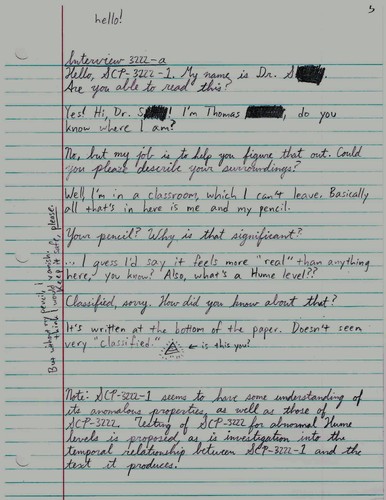 5
hello!
Interview 3222-a
Hello, SCP-3222-1. My name is Dr. S
Are you able to read this?
Yes! Hi, Dr. S ! I'm Thomas , do you
know where I am?
No, but my job is to help you figure that out. Could
you please describe your surroundings?
Well, I'm in a classroom, which I can't leave. Basically
all that's in here is me and my pencil.
Your pencil? Why is that significant?
... I guess I'd say it feels more "real" than anything
here, you know? Also, what's a Hume level??
Classified, sorry. How did you know about that?
It's written at the bottom of the paper. Doesn't seem
very "classified."
← is this you?
But without my pencil, I
think I would vanish.
Keep it safe, please.
Note: SCP-3222-1 seems to have some understanding of
its anomalous properties, as well as those of
SCP-3222. Testing of SCP-3222 for abnormal Hume
levels is proposed, as is investigation into the
temporal relationship between SCP-3222-1 and the
text it produces.